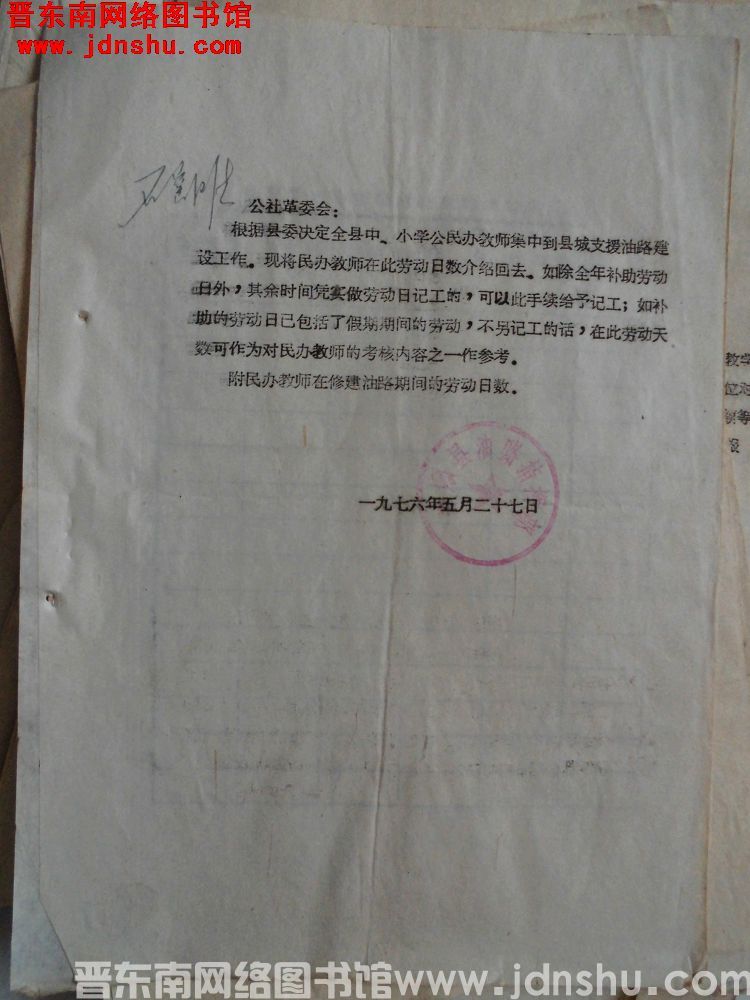 晋东南网络图书馆
www.jdnshu.com
公社革委会：
根据县委决定全县中、小学公民办教师集中到县城支援油路建
设工作。现将民办教师在此劳动日数介绍回去。如除全年补助劳动
日外，其余时间凭实做劳动日记工的，可以此手续给予记工；如补
助的劳动日已包括了假期期间的劳动，不另记工的话，在此劳动天
数可作为对民办教师的考核内容之一作参考。
附民办教师在修建油路期间的劳动日数。
县油路指挥
一九七六年五月二十七日
教学
晋东南网络图书馆www.jdnshu.com